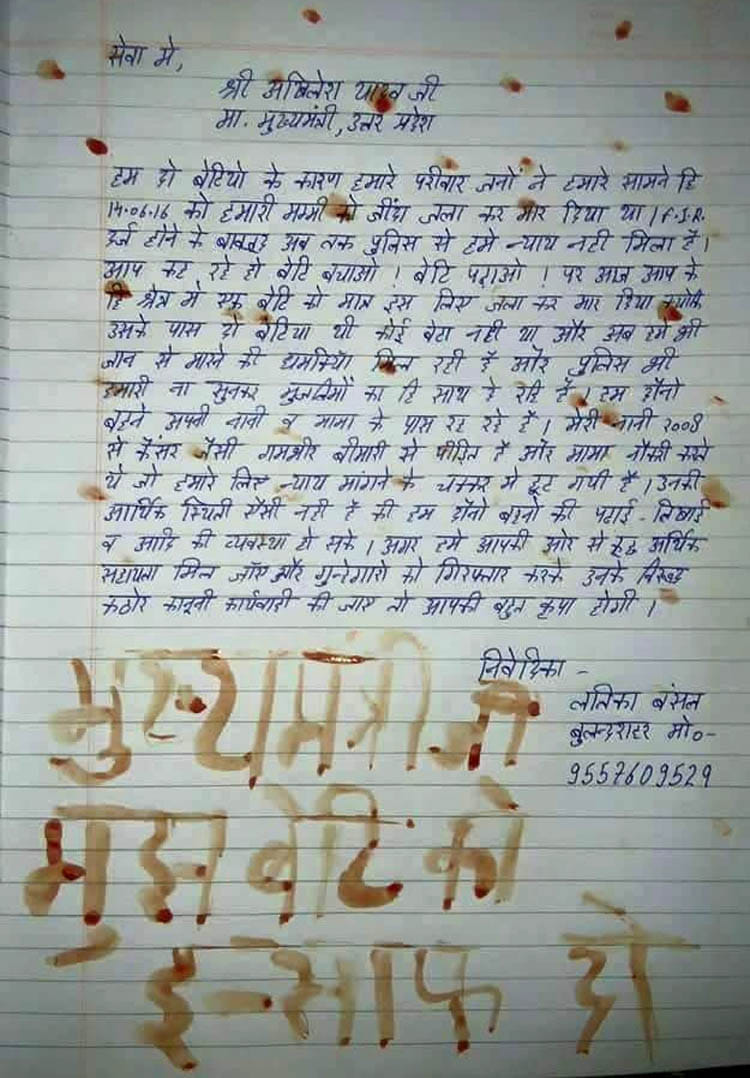 सेवा मे,
श्री अखिलेश यादव जी
मा. मुख्यमंत्री, उत्तर प्रदेश
हम दो बेटियो के कारण हमारे परीवार जनों ने हमारे सामने हि
14.06.16 को हमारी मम्मी को जींदा जला कर मार दिया था । F.I.R.
दर्ज होने के बावजूद अब तक पुलिस से हमे न्याय नही मिला है।
आप कह रहे हो बेटि बचाओ ! बेटि पढाओ ! पर आज आप के
हि श्रेत्र मे एक बेटि को मात्र इस लिए जला कर मार दिया क्योकि
उसके पास दो बेटिया थी कोई बेटा नही था और अब हमे भी
जान से मारने की धमकियाँ मिल रही है और पुलिस भी
हमारी ना सुनकर मुजलिमों का हि साथ दे रहि है। हम दोनो
बहने अपनी नानी व मामा के पास रह रहे है। मेरी नानी 2008
से कैंसर जैसी गमभीर बीमारी से पीडित है और मामा नौकरी करते
थे जो हमारे लिए न्याय मांगने के चक्कर मे छूट गयी है। उनकी
आर्थिक स्थिती ऐसी नही है की हम दोनो बहनो की पढाई-लिखाई
व आदि की व्यवस्था हो सके। अगर हमे आपकी ओर से कुछ आर्थिक
सहायता मिल जाए और गुन्हेगारो को गिरफ्तार करके उनके विरुद्ध
कठोर कानूनी कार्यवाही की जाए तो आपकी बहुत कृपा होगी ।
निवेदिका -
लतिका बंसल
बुलन्दशहर मो०-
9557609529
मुख्यमंत्री जी
मुझ बेटि को
इन्साफ दो